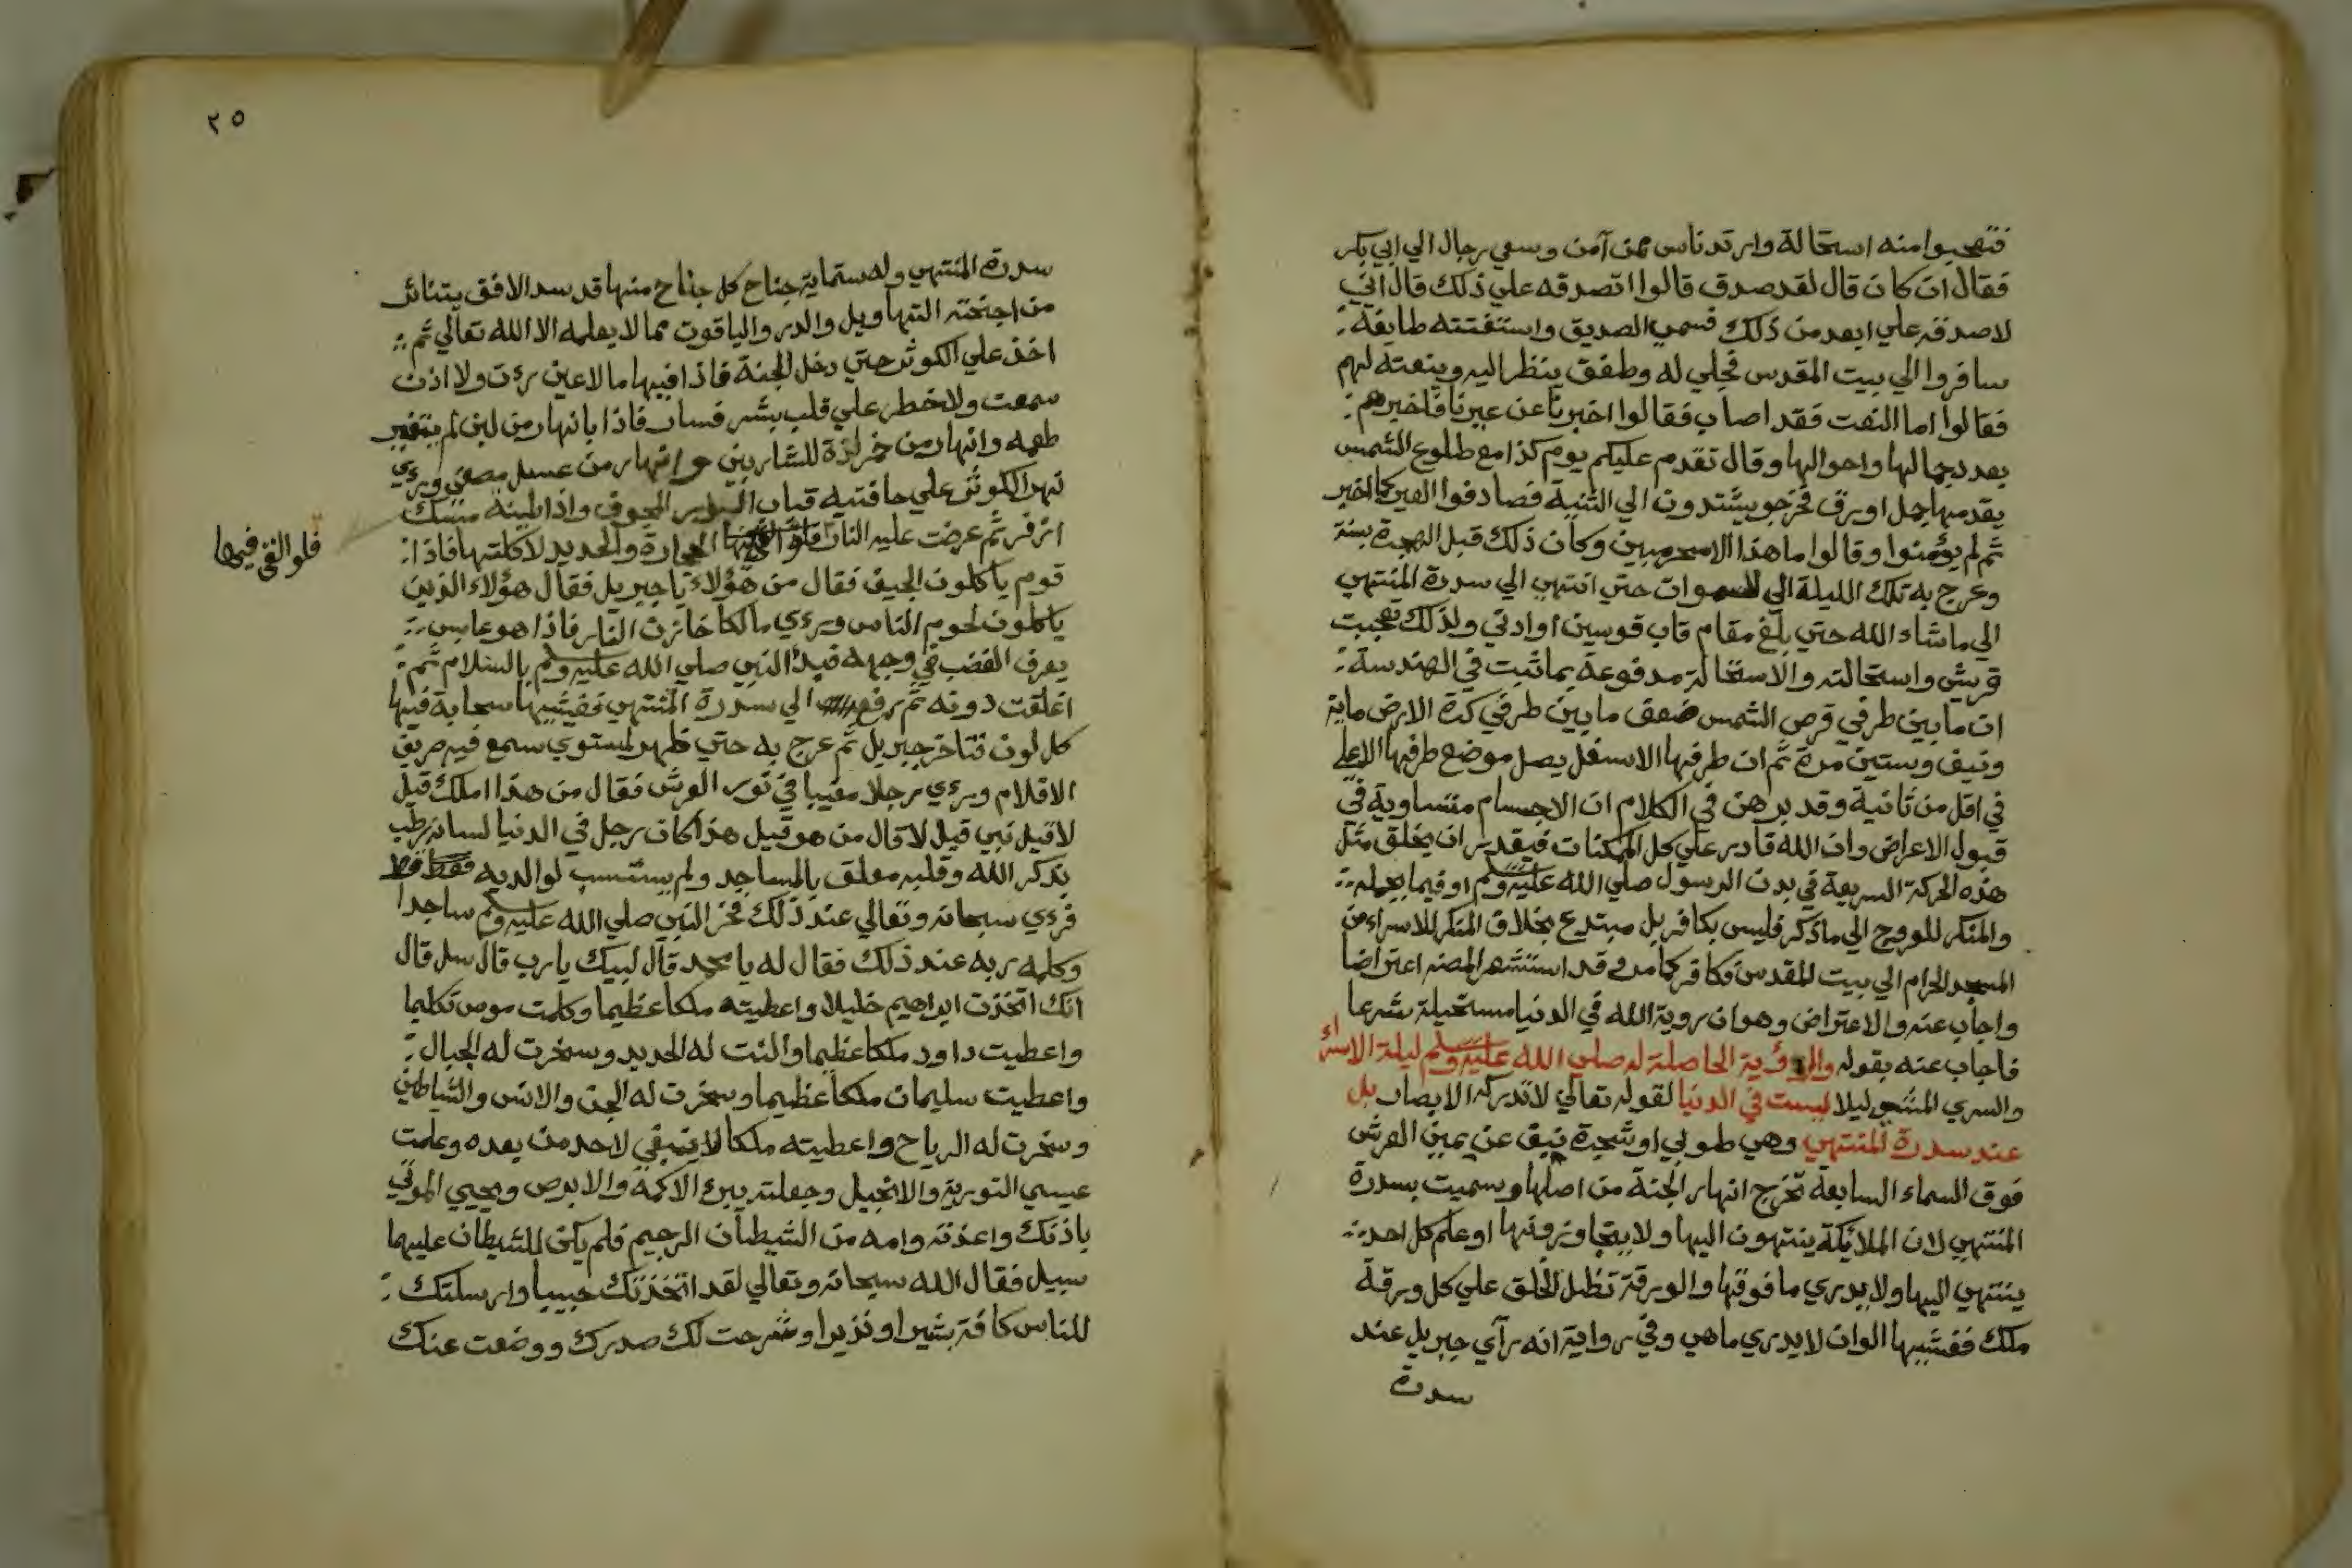 فتعجبوا منه استحالة وارتد ناس ممن آمن وسعي رجال الي ابي بكر
فقال ان كان قال لقد صدق قالوا اتصدقه علي ذلك قال اني
لاصدقه علي ابعد من ذلك فسمي الصديق واستنعتته طايفة
سافروا الي بيت المقدس فجلي له وطفق ينظر اليه وينعته لهم
فقالوا اما النعت فقد اصاب فقالوا اخبرنا عن عيرنا فاخبرهم
بعدد جمالها واحوالها وقال تقدم عليكم يوم كذا مع طلوع الشمس
يقدمها جمل اورق فخرجو يشتدون الي الثنية فصادفوا العير كما اخبر
ثم لم يؤمنوا وقالوا ما هذا الا سحر مبين وكان ذلك قبل الهجرة بسنة
وعرج به تلك الليلة الي السموات حتي انتهي الي سدرة المنتهي
الي ما شاء الله حتي بلغ مقام قاب قوسين او ادني ولذلك تعجبت
قريش واستحالته والاستحالة مدفوعة بما ثبت في الهندسة
ان ما بين طرفي قرص الشمس ضعف ما بين طرفي كرة الارض ماية
ونيف وستين مرة ثم ان طرفها الاسفل يصل موضع طرفها الاعلي
في اقل من ثانية وقد برهن في الكلام ان الاجسام متساوية في
قبول الاعراض وان الله قادر علي كل الممكنات فيقدر ان يخلق مثل
هذه الحركة السريعة في بدن الرسول صلي الله عليه وسلم او فيما يحمله
والمنكر للعروج الي ما ذكر فليس بكافر بل مبتدع بخلاف المنكر للاسراء من
المسجد الحرام الي بيت المقدس فكافر كما مر وقد استشعر المصنف اعتراضا
واجاب عنه والاعتراض وهو ان روية الله في الدنيا مستحيلة شرعا
فاجاب عنه بقوله والرؤية الحاصلة له صلي الله عليه وسلم ليلة الاسراء
والسري المشي ليلا ليست في الدنيا لقوله تعالي لا تدركه الابصار بل
عند سدرة المنتهي وهي طوبي او شجرة نبق عن يمين العرش
فوق السماء السابعة تخرج انهار الجنة من اصلها وسميت بسدرة
المنتهي لان الملائكة ينتهون اليها ولا يتجاوزونها او علم كل احد
ينتهي اليها ولا يدري ما فوقها والورقة تظل الخلق علي كل ورقة
ملك فغشيها الوان لا يدري ما هي وفي رواية انه رآي جبريل عند
سدرة
٢٥
سدرة المنتهي وله ستماية جناح كل جناح منها قد سد الافق يتناثر
من اجنحته التهاويل والدر والياقوت مما لا يعلمه الا الله تعالي ثم
اخذ علي الكوثر حتي دخل الجنة فاذا فيها ما لا عين رءت ولا اذن
سمعت ولا خطر علي قلب بشر فسار فاذا بانهار من لبن لم يتغير
طعمه وانهار من خمر لذة للشاربين وانهار من عسل مصفي وراي
نهر الكوثر علي حافتيه قباب الدر المجوف واذا طينه مسك
اذفر ثم عرضت عليه النار الحجارة والحديد لاكلتها فاذا
فلو القي فيها
قوم ياكلون الجيف فقال من هؤلاء يا جبريل فقال هؤلاء الذين
ياكلون لحوم الناس وراي مالكا خازن النار فاذا هو عابس
يعرف الغضب في وجهه فبدأ النبي صلي الله عليه وسلم بالسلام ثم
اغلقت دونه ثم رفع الي سدرة المنتهي فغشيها سحابة فيها
كل لون فتاخر جبريل ثم عرج به حتي ظهر لمستوي سمع فيه صريف
الاقلام وراي رجلا مغيبا في نور العرش فقال من هذا املك قيل
لا قيل نبي قيل لا قال من هو قيل هذا كان رجل في الدنيا لسانه رطب
بذكر الله وقلبه معلق بالمساجد ولم يستسب لوالديه قط
فراي سبحانه وتعالي عند ذلك فخر النبي صلي الله عليه وسلم ساجدا
وكلمه ربه عند ذلك فقال له يا محمد قال لبيك يا رب قال سل قال
انك اتخذت ابراهيم خليلا واعطيته ملكا عظيما وكلمت موسي تكليما
واعطيت داود ملكا عظيما والنت له الحديد وسخرت له الجبال
واعطيت سليمان ملكا عظيما وسخرت له الجن والانس والشياطين
وسخرت له الرياح واعطيته ملكا لا ينبغي لاحد من بعده وعلمت
عيسي التورية والانجيل وجعلته يبرئ الاكمه والابرص ويحيي الموتي
باذنك واعذته وامه من الشيطان الرجيم فلم يكن للشيطان عليهما
سبيل فقال الله سبحانه وتعالي لقد اتخذتك حبيبا وارسلتك
للناس كافة بشيرا ونذيرا وشرحت لك صدرك ووضعت عنك